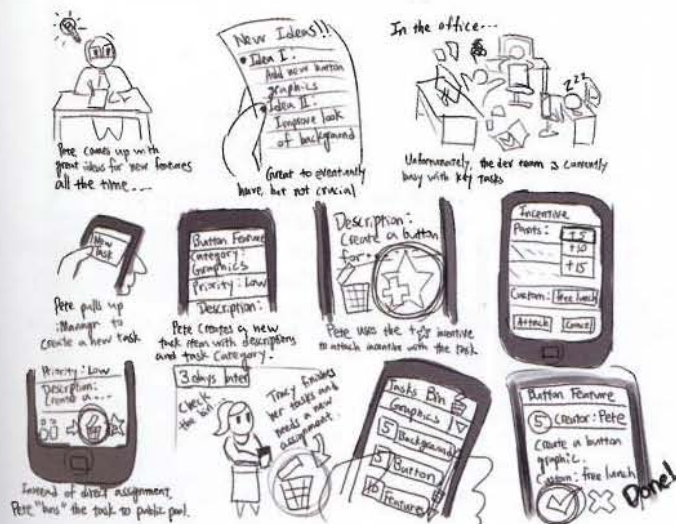 Pete comes up with
great ideas for new features
all the time....
New Ideas!!
• Idea I:
Add new button
graphics
• Idea II:
Improve look
of background
Great to eventually
have, but not crucial
In the office...
zzz
Unfortunately, the dev team is currently
busy with key tasks
New
Task
Pete pulls up
iManagr to
create a new task
Button Feature
Category:
Graphics
Priority: Low
Description:
Pete creates a new
task item with description
and task category.
Description:
Create a button
for...
Pete uses the incentive
to attach incentive with the task
Incentive
Points:
+5
+10
+15
Custom: free lunch
Attach Cancel
Priority: Low
Description:
Create a...
Instead of direct assignment,
Pete "bins" the task to public pool.
3 days later
Check
the bin!
Tracy finishes
her tasks and
needs a new
assignment.
Tasks Bin
Graphics
5 Background
5 Button
10 Feature
Button Feature
5 Creator: Pete
Create a button
graphic.
Custom: free lunch
Done!